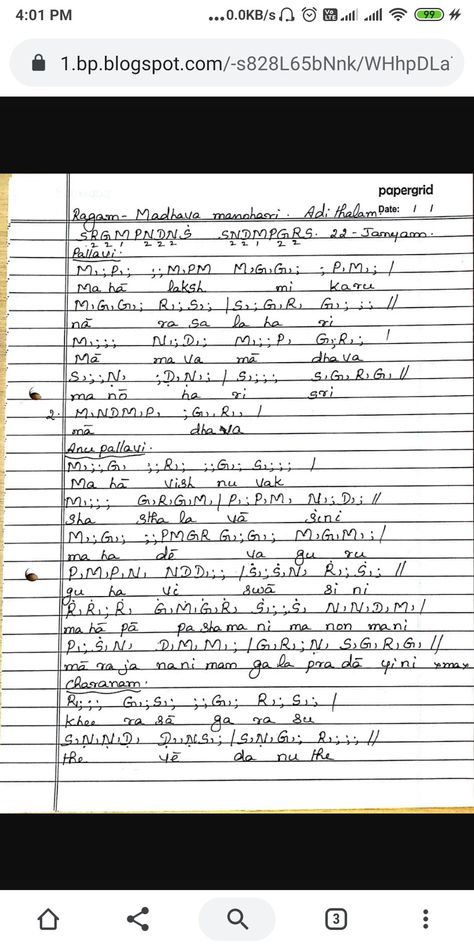 4:01 PM ...0.0KB/s 99
1.bp.blogspot.com/-s828L65bNnk/WHhpDLa
papergrid
Date: / /
Ragam - Madhava manohari. Adi thalam
S R G M P N D N Ṡ S N D M P G R S. 22 - Janyam.
2 2 1 2 2 2 2 2 1 2 2
Pallavi:
M,; P,; ;; M, P M M, G, G,; ; P, M,; /
Ma hā laksh mi karu
M, G, G,; R,; S,; | S,; G, R, G,; ;; //
nā ra sa la ha ri
M,; ;; N,; D,; M,; ; P, G, R,; /
Mā ma va mā dhava
S,; ; Ṇ, ; Ḍ, Ṇ,; | S,; ;; S, G, R, G, //
ma nō ha ri sri
2. M, N D M, P, ; G, R, , /
mā dhava
Anu pallavi:
M,; ; G, ;; R,; ;; G,; S,; ;; /
Ma hā vish nu vak
M,; ;; G, R, G, M, | P,; P, M, N,; D,; //
sha stha la vā sini
M,; G,; ;; P M G R G,; G,; M, G, M,; /
ma ha dē va gu ru
P, M, P, N, N D D,; ; | Ṡ,; Ṡ, N, Ṙ,; Ṡ,; //
gu ha vi swā si ni
Ṙ, Ṙ,; Ṙ, Ġ, Ṁ, Ġ, Ṙ, Ṡ,; ; Ṡ, N, N, D, M, /
ma hā pā pa sha ma ni ma non mani
P,; Ṡ, N, D, M, M,; | G, R,; Ṇ, S, G, R, G, //
mā ra ja na ni mam ga la pra dā yi ni
Charanam:
R,; ;; G,; S,; ;; G,; R,; S,; /
khee ra sā ga ra su
S, Ṇ, Ṇ, Ḍ, Ḍ, Ṇ, S,; | S, Ṇ, G,; R,; ;; //
the vē da nu the
3